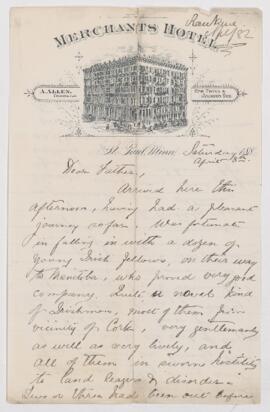 MERCHANTS HOTEL
A. ALLEN,
COR. THIRD &
JACKSON STS.
St. Paul, Minn. Saturday 188
April 8th
Dear Father,
Arrived here this
afternoon, having had a pleasant
journey so far. Was fortunate
in falling in with a dozen of
young Irish fellows, on their way
to Manitoba, who proved very good
company. Quite a novel kind
of Irishmen, most of them from
vicinity of Cork, very gentlemanly
as well as very lively, and
all of them in sworn hostility
to land leagues & disorder.
Two or three had been out before